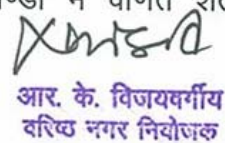 में वर्णित
आर. के. विजयवर्गीय
वरिष्ठ नगर नियोजक